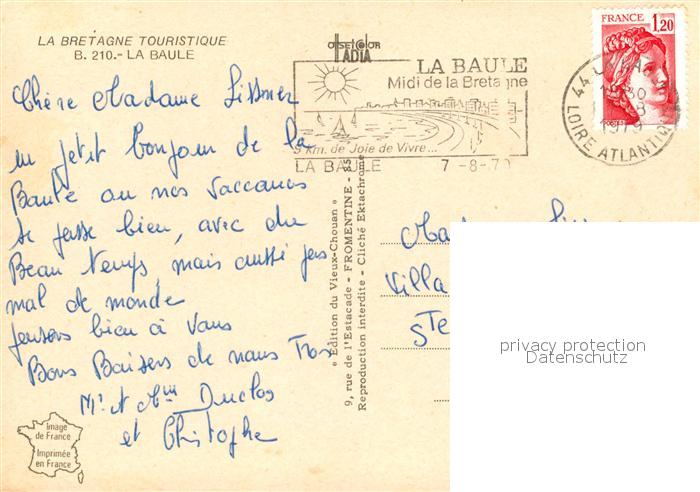 LA BRETAGNE TOURISTIQUE
B. 210.- LA BAULE
Chère Madame
un petit bonjour de la
Baule ou nos vaccances
se passe bien, avec du
Beau temps, mais aussi pas
mal de monde
pensons bien à vous
Bons Baisers de nous Trois
Mr et Mme Duclos
et Christophe
Image
de France
Imprimée
en France
offset color
IADIA
LA BAULE
Midi de la Bretagne
9 Km. de Joie de Vivre...
LA BAULE 7-8-79
FRANCE 1,20
44 LA BAULE
1979
LOIRE ATLANTIQUE
« Edition du Vieux-Chouan »
9, rue de l'Estacade - FROMENTINE - 85
Reproduction interdite - Cliché Ektachrome
Villa
Ste
privacy protection
Datenschutz